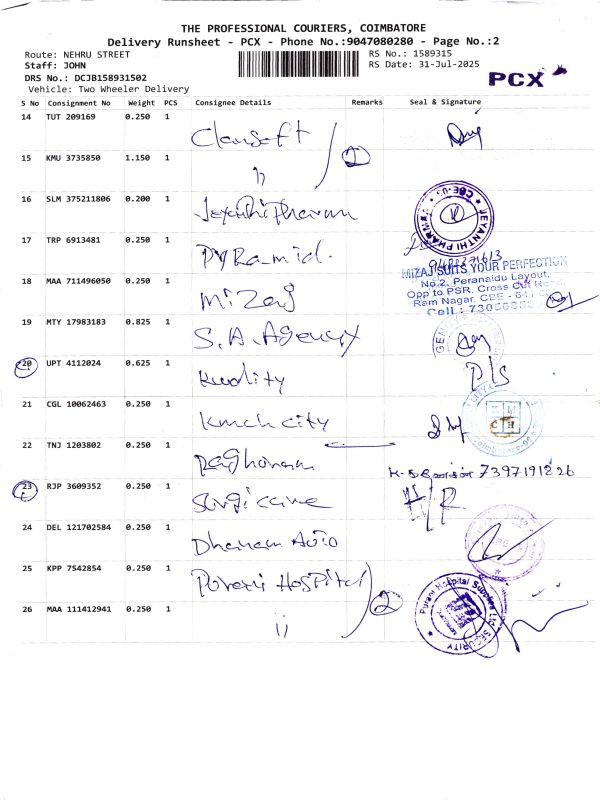 THE PROFESSIONAL COURIERS, COIMBATORE
Delivery Runsheet - PCX - Phone No.:9047080280 - Page No.:2
Route: NEHRU STREET
RS No.: 1589315
Staff: JOHN
RS Date: 31-Jul-2025
DRS No.: DCJB158931502
PCX
Vehicle: Two Wheeler Delivery
S No Consignment No Weight PCS Consignee Details Remarks Seal & Signature
14 TUT 209169 0.250 1
15 KMU 3735850 1.150 1 " 2
16 SLM 375211806 0.200 1 JEYANTHI PHARMA CBE
17 TRP 6913481 0.250 1 Pyramid.
MIZAJ SUITS YOUR PERFECTION
No.2, Peranaidu Layout,
Opp to PSR, Cross Cut Road,
Ram Nagar, CBE - 641
Cell : 73
18 MAA 711496050 0.250 1 Mizaj
19 MTY 17983183 0.825 1 S.A. Agency
20 UPT 4112024 0.625 1 Kwality D/S
21 CGL 10062463 0.250 1 kmch city
22 TNJ 1203802 0.250 1 Raghuram 7397191226
23 RJP 3609352 0.250 1 Surgicare H/R
24 DEL 121702584 0.250 1 Dhanam Auto
25 KPP 7542854 0.250 1 Hospital 2
26 MAA 111412941 0.250 1 " Hospital Supplies SECURITY